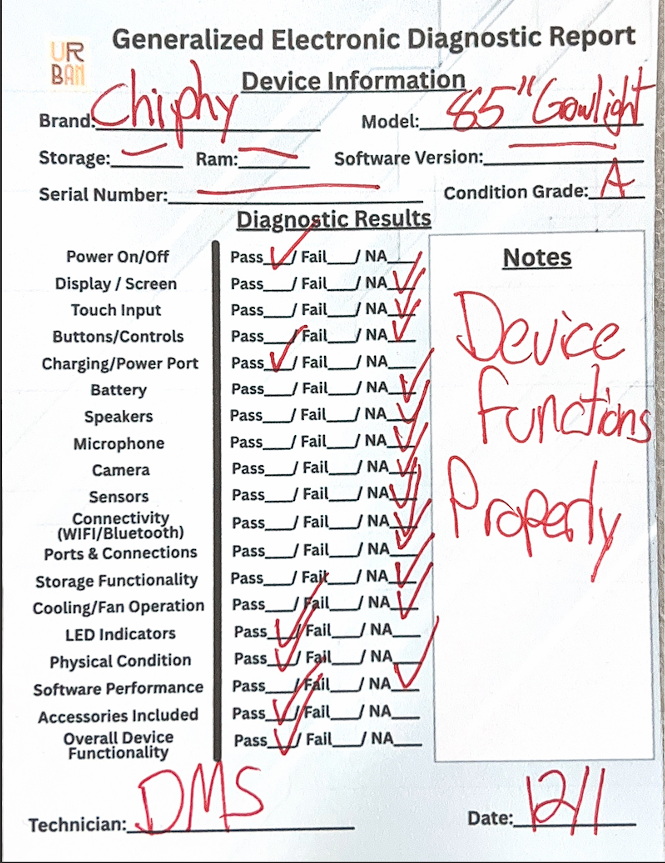 UR
BAN
Generalized Electronic Diagnostic Report
Device Information
Brand: Chiphy Model: 85" Gowlight
Storage: — Ram: — Software Version: —
Serial Number: — Condition Grade: A
Diagnostic Results
Power On/Off Pass ✓/ Fail___/ NA___
Display / Screen Pass___/ Fail___/ NA ✓
Touch Input Pass___/ Fail___/ NA ✓
Buttons/Controls Pass___/ Fail___/ NA ✓
Charging/Power Port Pass ✓/ Fail___/ NA___
Battery Pass___/ Fail___/ NA ✓
Speakers Pass___/ Fail___/ NA ✓
Microphone Pass___/ Fail___/ NA ✓
Camera Pass___/ Fail___/ NA ✓
Sensors Pass___/ Fail___/ NA ✓
Connectivity
(WIFI/Bluetooth) Pass___/ Fail___/ NA ✓
Ports & Connections Pass___/ Fail___/ NA ✓
Storage Functionality Pass___/ Fail___/ NA ✓
Cooling/Fan Operation Pass___/ Fail___/ NA ✓
LED Indicators Pass ✓/ Fail___/ NA___
Physical Condition Pass ✓/ Fail___/ NA___
Software Performance Pass___/ Fail___/ NA ✓
Accessories Included Pass ✓/ Fail___/ NA___
Overall Device
Functionality Pass ✓/ Fail___/ NA___
Notes
Device
Functions
Properly
Technician: DMS Date: 12/1